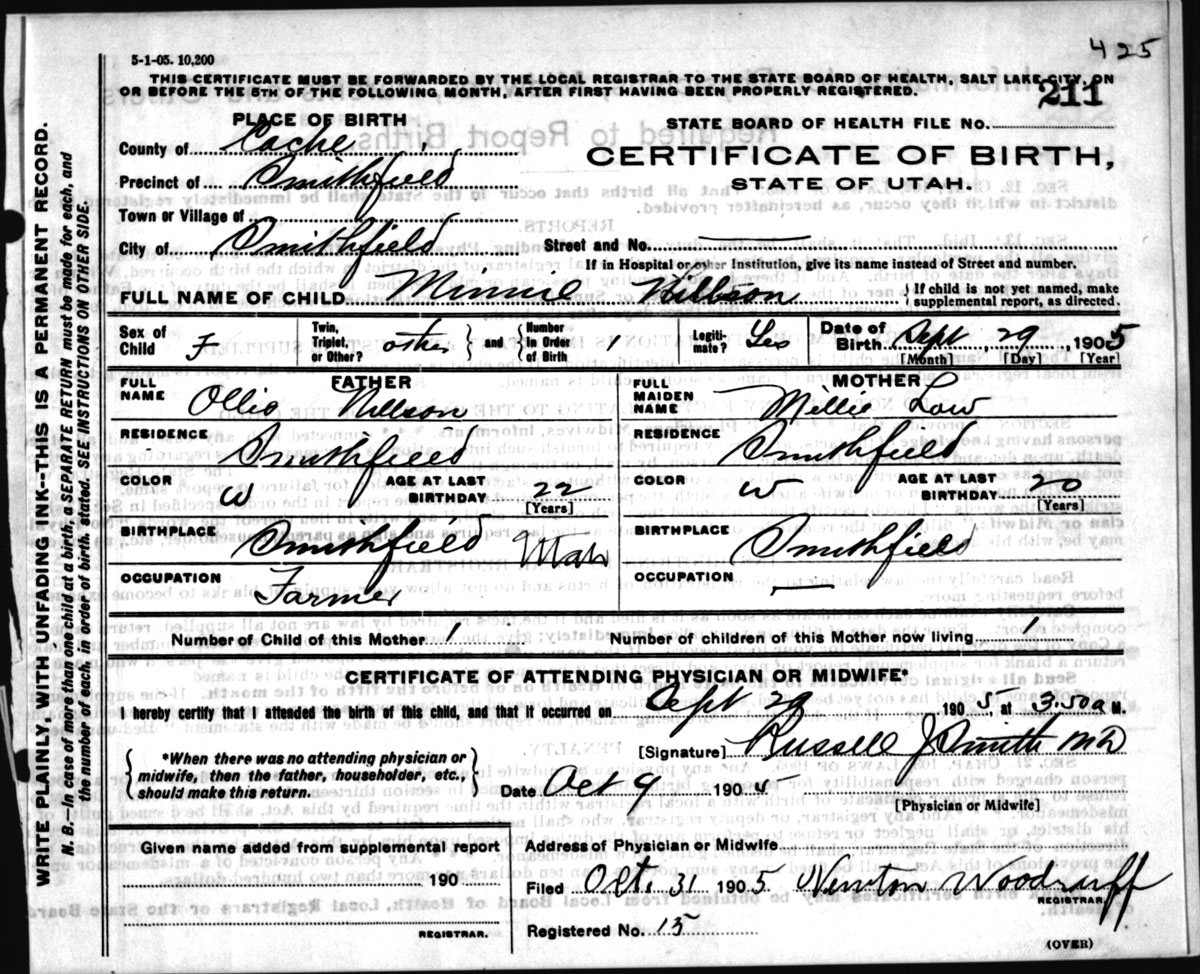 425
5-1-05. 10,200
THIS CERTIFICATE MUST BE FORWARDED BY THE LOCAL REGISTRAR TO THE STATE BOARD OF HEALTH, SALT LAKE CITY, ON
OR BEFORE THE 5TH OF THE FOLLOWING MONTH, AFTER FIRST HAVING BEEN PROPERLY REGISTERED.
211
PLACE OF BIRTH
STATE BOARD OF HEALTH FILE No.
County of Cache
CERTIFICATE OF BIRTH,
STATE OF UTAH.
Precinct of Smithfield
Town or Village of
City of Smithfield
Street and No. —
If in Hospital or other Institution, give its name instead of Street and number.
FULL NAME OF CHILD Minnie Nillson { If child is not yet named, make
supplemental report, as directed.
Sex of Child F Twin, Triplet, or Other? other } and { Number in Order of Birth 1 Legiti-mate? Yes Date of Birth Sept 29 1905
[Month] [Day] [Year]
FATHER
FULL NAME Ollie Nillson
MOTHER
FULL MAIDEN NAME Mellie Low
RESIDENCE Smithfield
RESIDENCE Smithfield
COLOR W AGE AT LAST BIRTHDAY 22 [Years]
COLOR W AGE AT LAST BIRTHDAY 20 [Years]
BIRTHPLACE Smithfield Utah
BIRTHPLACE Smithfield
OCCUPATION Farmer
OCCUPATION —
Number of Child of this Mother 1 Number of children of this Mother now living 1
CERTIFICATE OF ATTENDING PHYSICIAN OR MIDWIFE*
I hereby certify that I attended the birth of this child, and that it occurred on Sept 29 1905, at 3.50 a M.
{ *When there was no attending physician or
midwife, then the father, householder, etc.,
should make this return. }
[Signature] Russell J Smith MD
Date Oct 9 190
[Physician or Midwife]
Given name added from supplemental report
190
REGISTRAR.
Address of Physician or Midwife
Filed Oct. 31 1905 Newton Woodruff
REGISTRAR.
Registered No. 15
(OVER)
WRITE PLAINLY, WITH UNFADING INK--THIS IS A PERMANENT RECORD.
N. B.—In case of more than one child at a birth, a SEPARATE RETURN must be made for each, and
the number of each, in order of birth, stated. SEE INSTRUCTIONS ON OTHER SIDE.